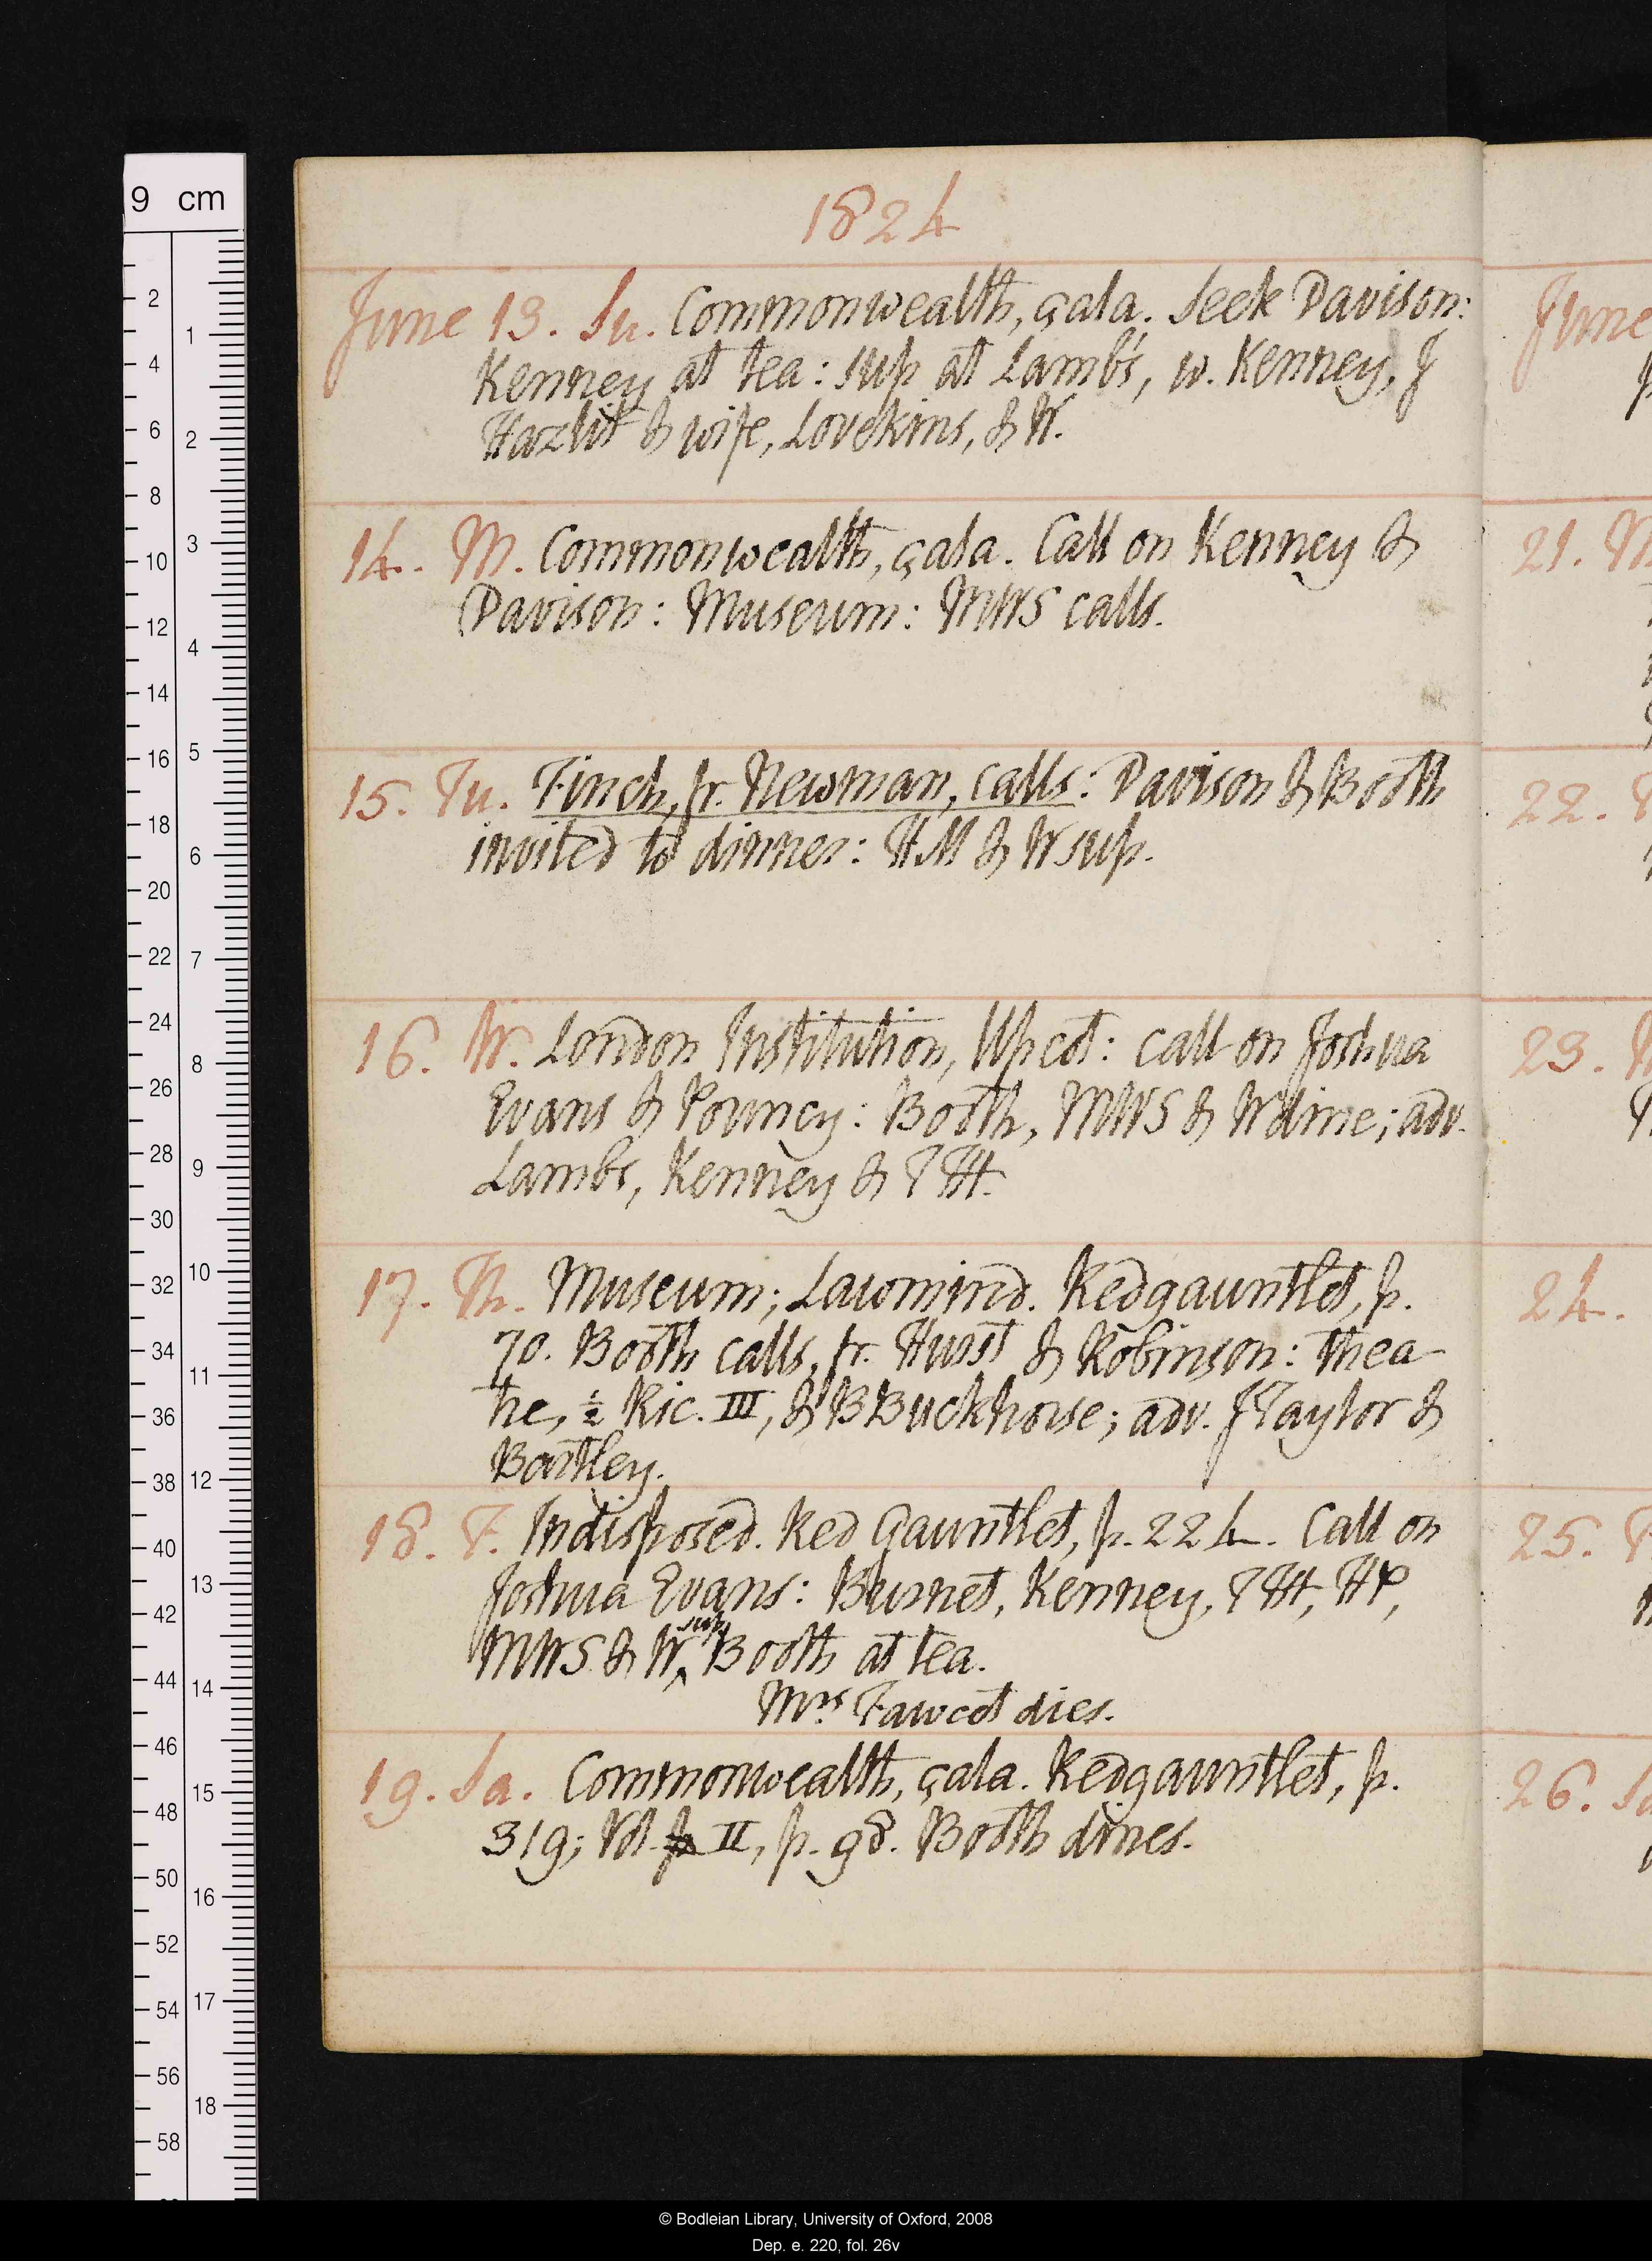 1824
June 13. Su. Commonwealth, çala. Seek Davison:
Kenney at tea: sup at Lamb's, w. Kenney, J
Hazlit & wife, Lovekins, & W.
14. M. Commonwealth, çala. Call on Kenney &
Davison: Museum: MWS calls.
15. Tu. Finch, fr. Newman, calls: Davison & Booth
invited to dinner: HM & W sup.
16. W. London Institution, Upcot: call on Joshua
Evans & Pouncy: Booth, MWS & W dine; adv.
Lambs, Kenney & TJH.
17. Th. Museum; Lawmind. Redgauntlet, p.
70. Booth calls, fr. Hurst & Robinson: thea-
tre, ½ Ric. III, & B Buckhorse; adv. J Taylor &
Bartley.
18. F. Indisposed. Red Gauntlet, p. 224. Call on
Joshua Evans: Burnet, Kenney, TJH, HP,
MWS & W sup, Booth at tea.
Mrs Fawcet dies.
19. Sa. Commonwealth, çala. Redgauntlet, p.
319; Vol. p II, p. 98. Booth dines.
June
21. M
22.
23.
24.
25.
26. Sa
9 cm
2
4
6
8
10
12
14
16
18
20
22
24
26
28
30
32
34
36
38
40
42
44
46
48
50
52
54
56
58
1
2
3
4
5
6
7
8
9
10
11
12
13
14
15
16
17
18
© Bodleian Library, University of Oxford, 2008
Dep. e. 220, fol. 26v